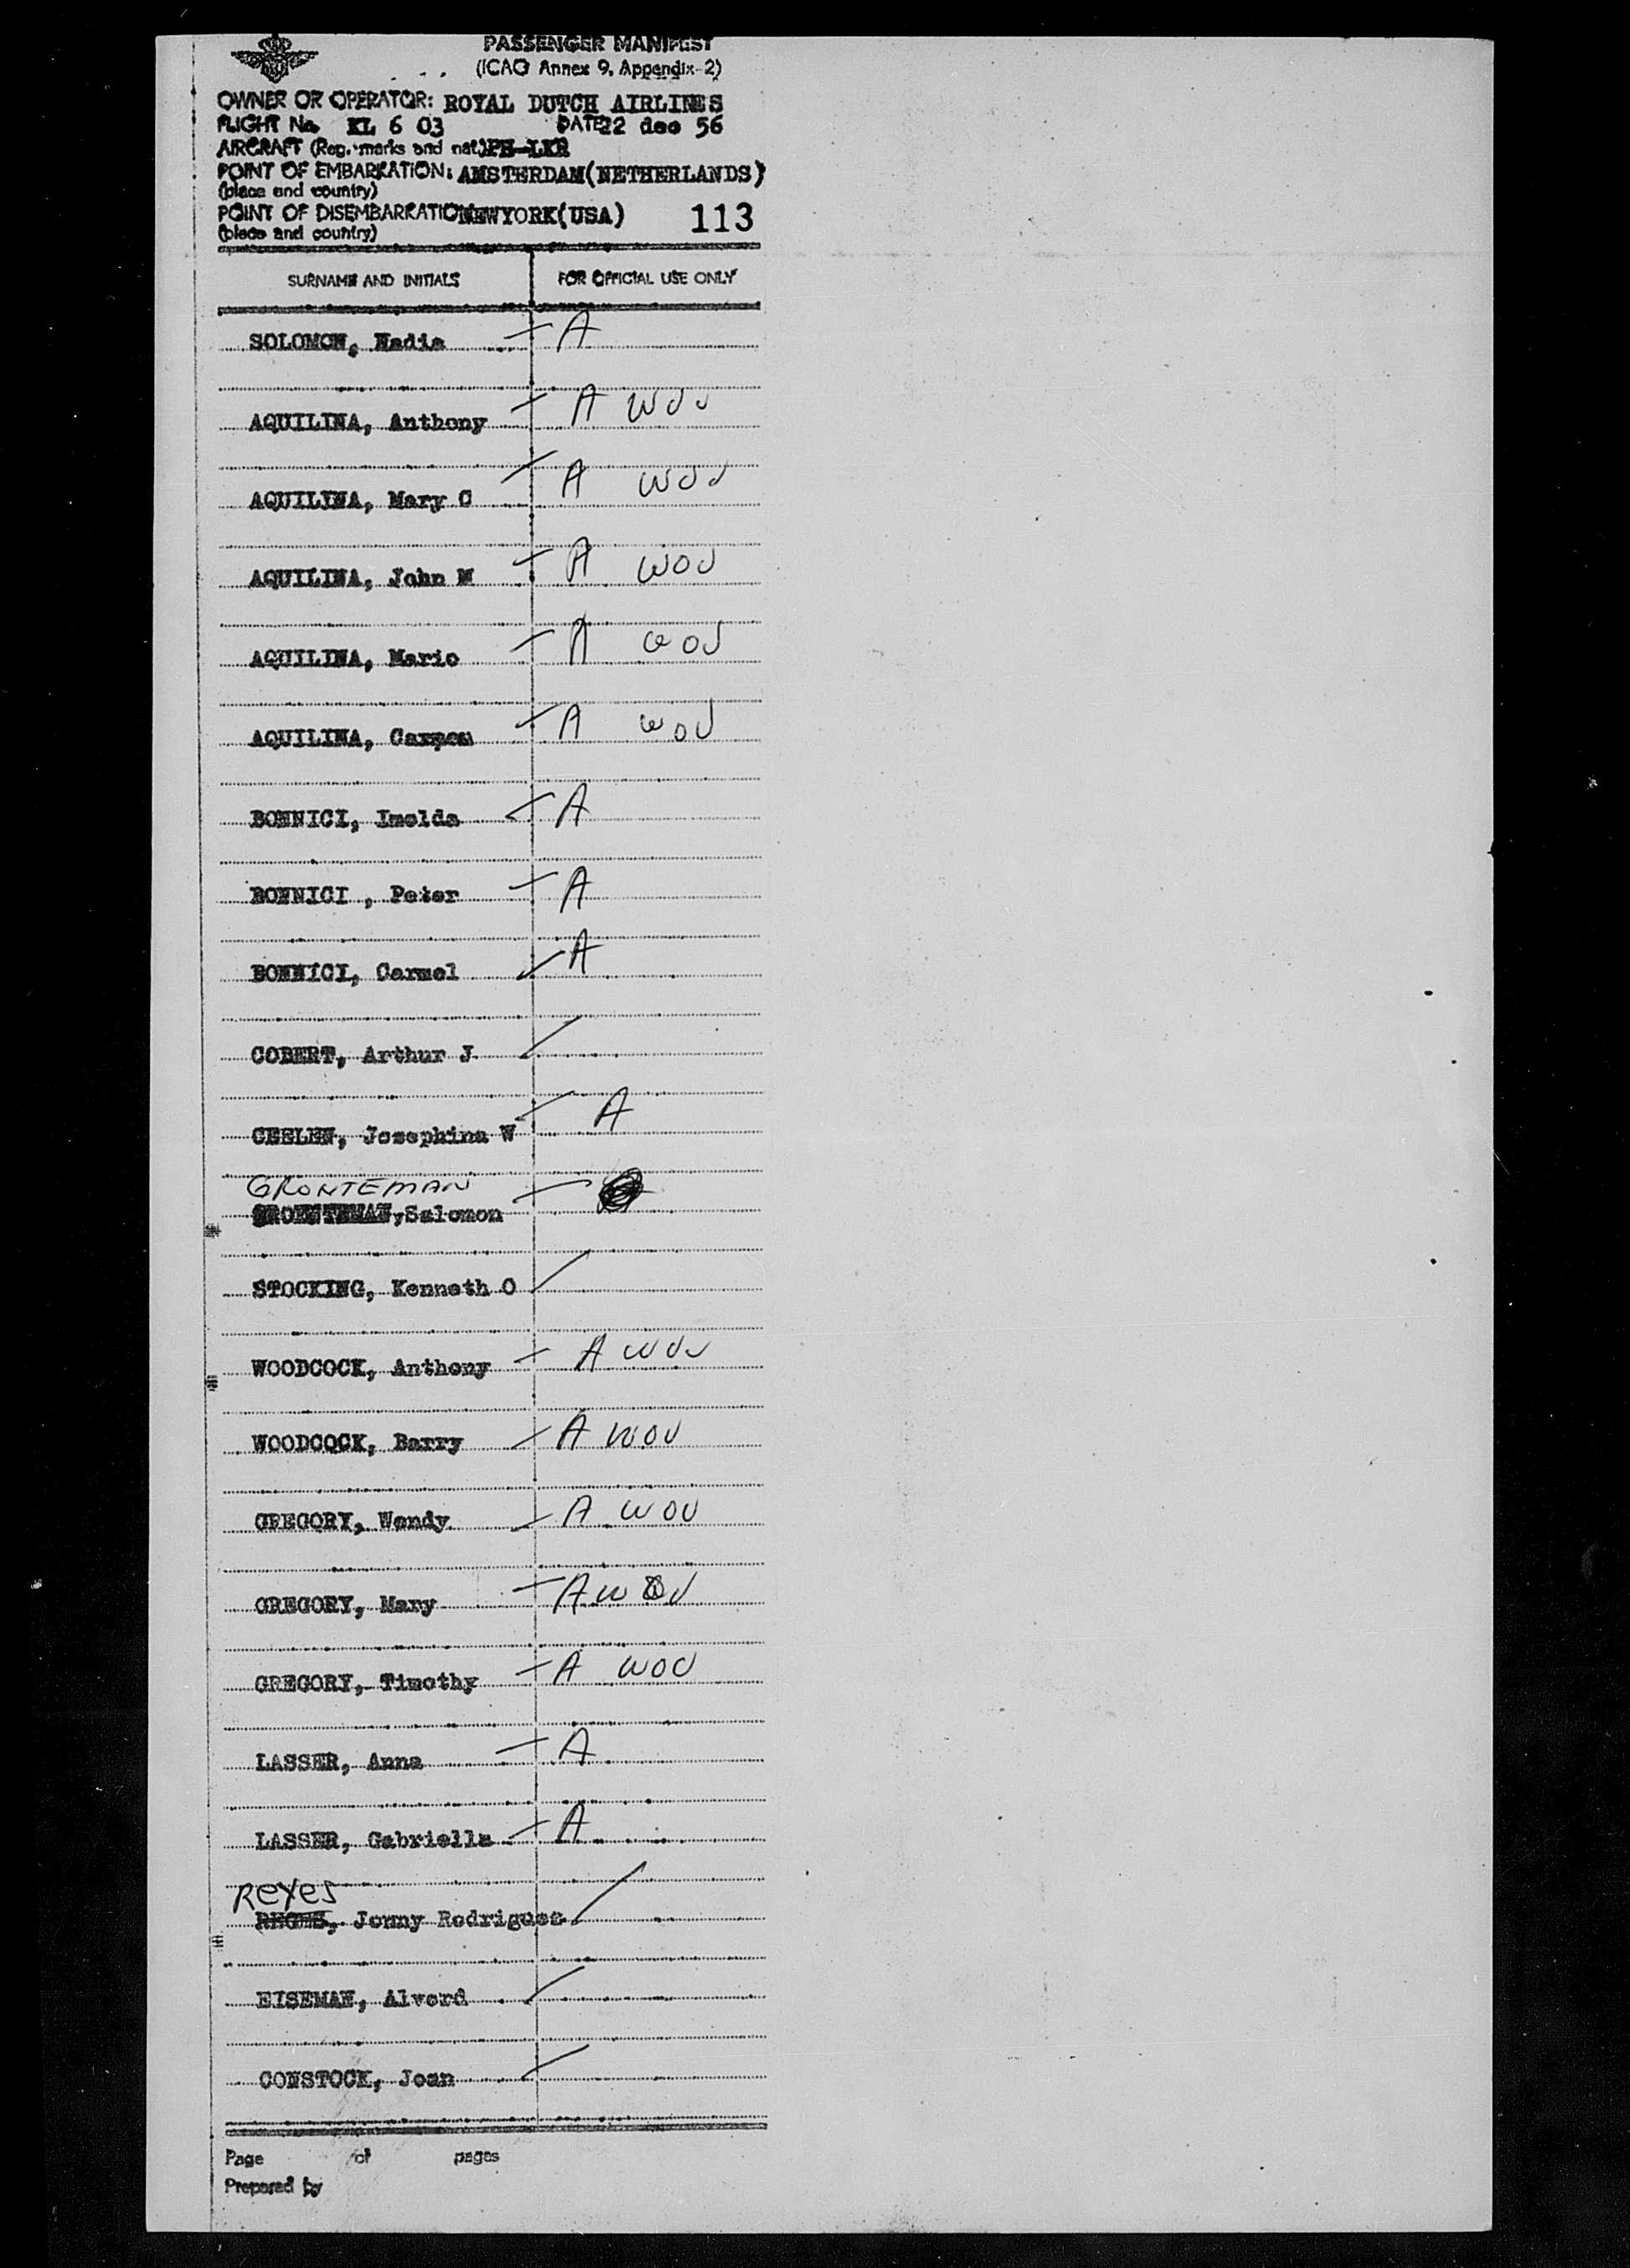 PASSENGER MANIFEST
(ICAO Annex 9, Appendix-2)
OWNER OR OPERATOR: ROYAL DUTCH AIRLINES
FLIGHT No. KL 6 03 DATE 22 dec 56
AIRCRAFT (Reg. marks and nat.) PH-LKR
POINT OF EMBARKATION: AMSTERDAM(NETHERLANDS)
(place and country)
POINT OF DISEMBARKATION NEWYORK(USA) 113
(place and country)
SURNAME AND INITIALS FOR OFFICIAL USE ONLY
SOLOMON, Nadia A
AQUILINA, Anthony A WOV
AQUILINA, Mary C A WOV
AQUILINA, John M A WOV
AQUILINA, Mario A WOV
AQUILINA, Carmen A WOV
BONNICI, Imelda A
BONNICI , Peter A
BONNICI, Carmel A
COBERT, Arthur J
GEELEN, Josephina W A
GRONTEMAN
GROENTEMAN, Salomon
STOCKING, Kenneth O
WOODCOCK, Anthony A WOV
WOODCOCK, Barry A WOV
GREGORY, Wendy A WOV
GREGORY, Mary A WOV
GREGORY, Timothy A WOV
LASSER, Anna A
LASSER, Gabriella A
Reyes
REGES, Jonny Rodriguez
EISEMAN, Alvord
CONSTOCK, Joan
Page of pages
Prepared by